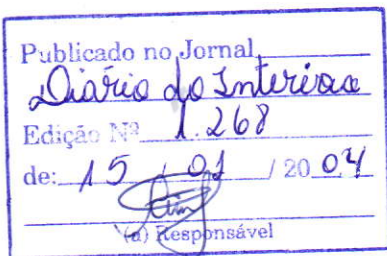 Publicado no Jornal
Diário do Interior
Edição Nº 1.268
de: 15 / 01 / 2004
(a) Responsável